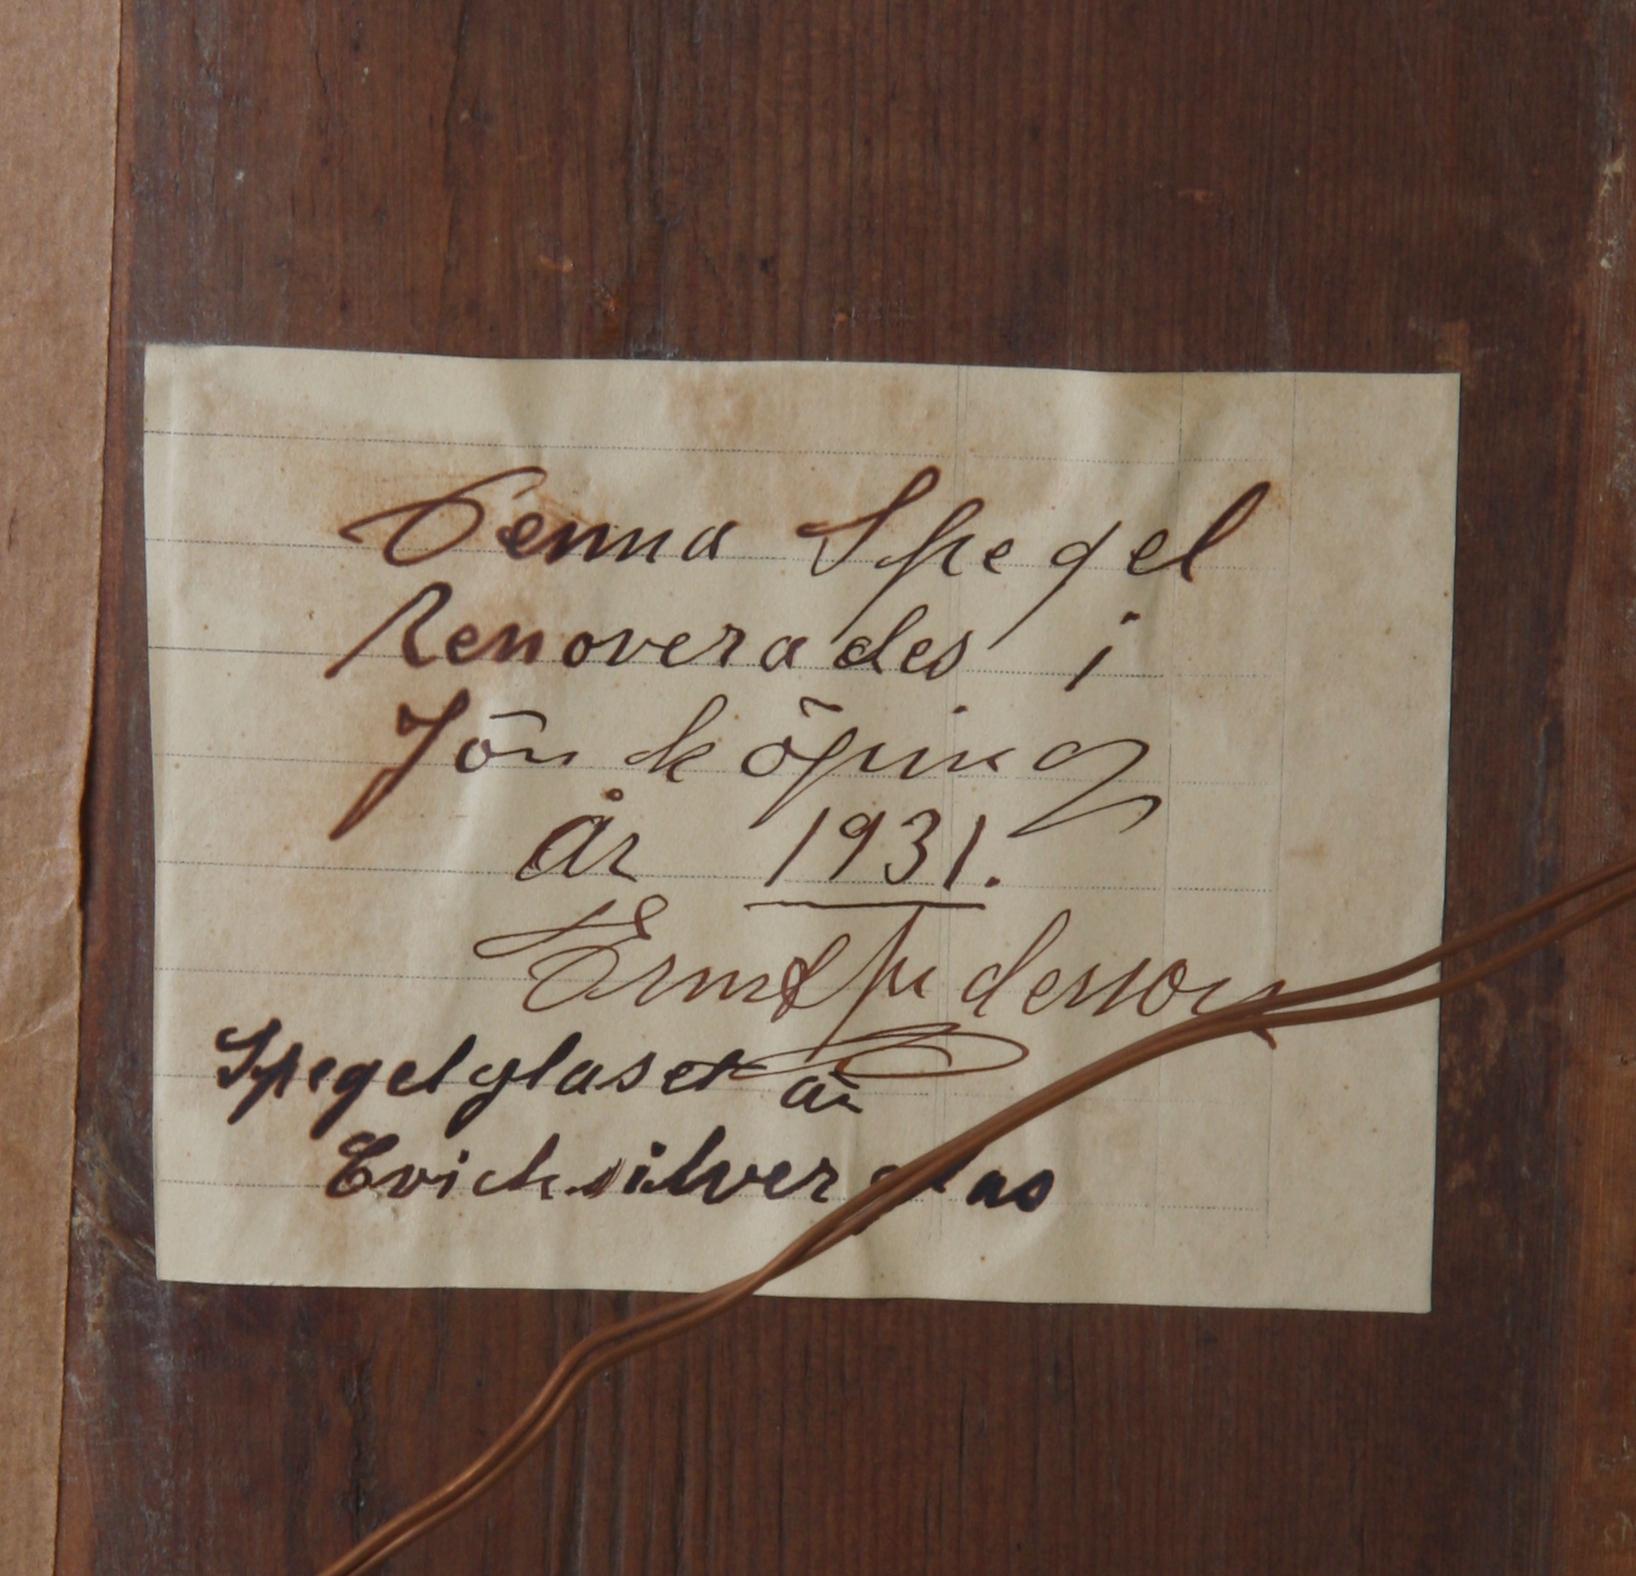 Denna Spegel
Renoverades i
Jönköping
År 1931.
Ernst Andersson
Spegelglaset är
Qvicksilverglas